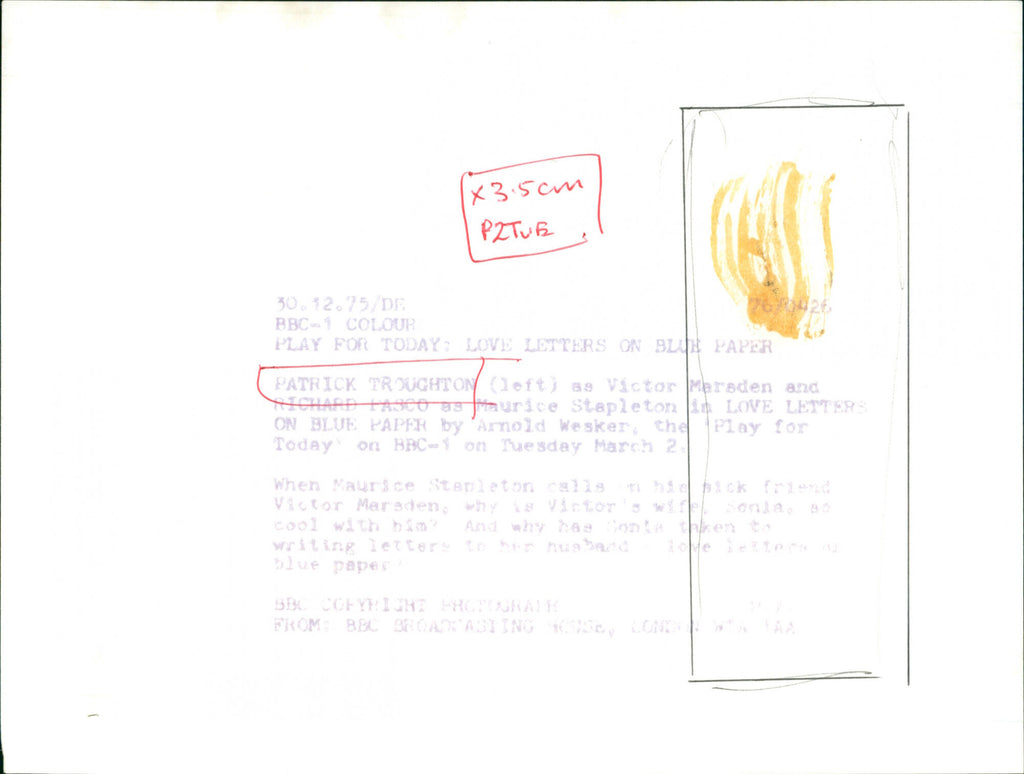 x 3.5cm
P2TUE
30.12.75/DE 76/0426
BBC-1 COLOUR
PLAY FOR TODAY: LOVE LETTERS ON BLUE PAPER
PATRICK TROUGHTON (left) as Victor Marsden and
RICHARD PASCO as Maurice Stapleton in LOVE LETTERS
ON BLUE PAPER by Arnold Wesker, the 'Play for
Today' on BBC-1 on Tuesday March 2.
When Maurice Stapleton calls on his sick friend
Victor Marsden, why is Victor's wife, Sonia, so
cool with him? And why has Sonia taken to
writing letters to her husband - love letters on
blue paper?
BBC COPYRIGHT PHOTOGRAPH
FROM: BBC BROADCASTING HOUSE, LONDON W1A 1AA